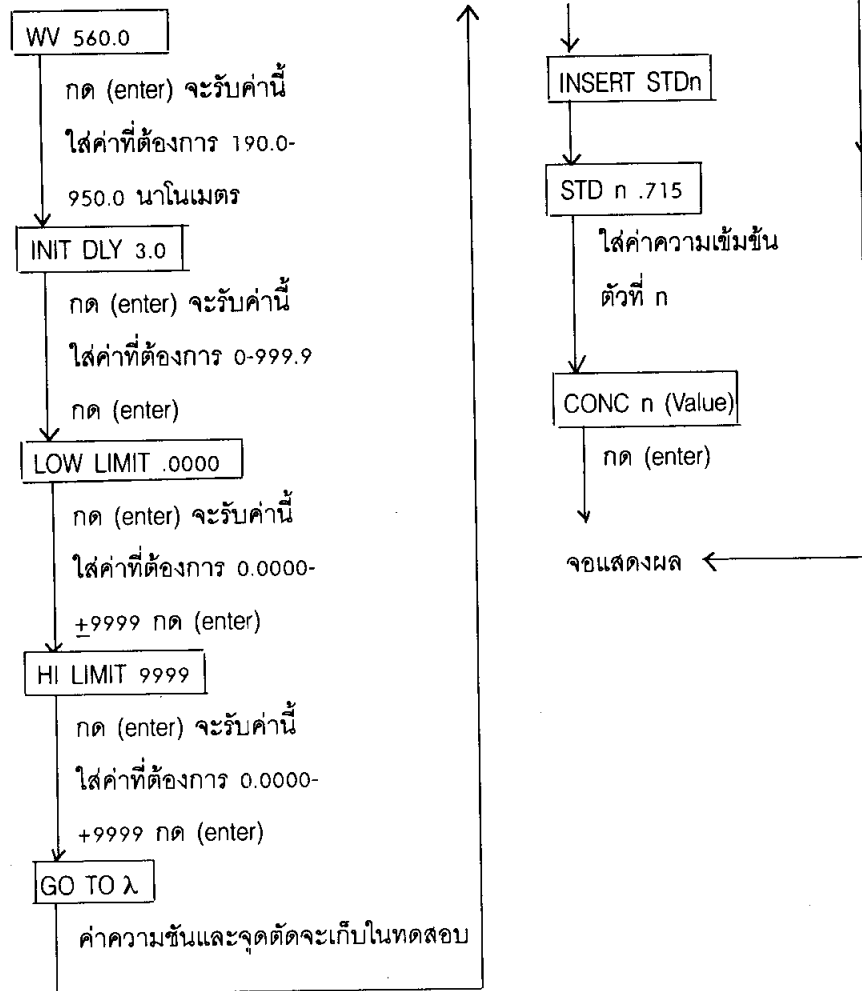 WV 560.0
กด (enter) จะรับค่านี้
ใส่ค่าที่ต้องการ 190.0-
950.0 นาโนเมตร
INIT DLY 3.0
กด (enter) จะรับค่านี้
ใส่ค่าที่ต้องการ 0-999.9
กด (enter)
LOW LIMIT .0000
กด (enter) จะรับค่านี้
ใส่ค่าที่ต้องการ 0.0000-
±9999 กด (enter)
HI LIMIT 9999
กด (enter) จะรับค่านี้
ใส่ค่าที่ต้องการ 0.0000-
+9999 กด (enter)
GO TO λ
ค่าความชันและจุดตัดจะเก็บในทดสอบ
INSERT STDn
STD n .715
ใส่ค่าความเข้มข้น
ตัวที่ n
CONC n (Value)
กด (enter)
จอแสดงผล